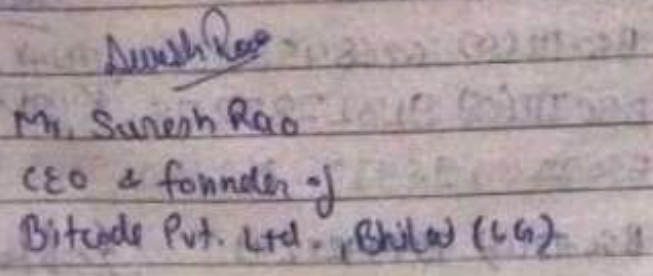 Suresh Rao
Mr. Suresh Rao
CEO & founder of
Bitcode Pvt. Ltd., Bhilai (CG)